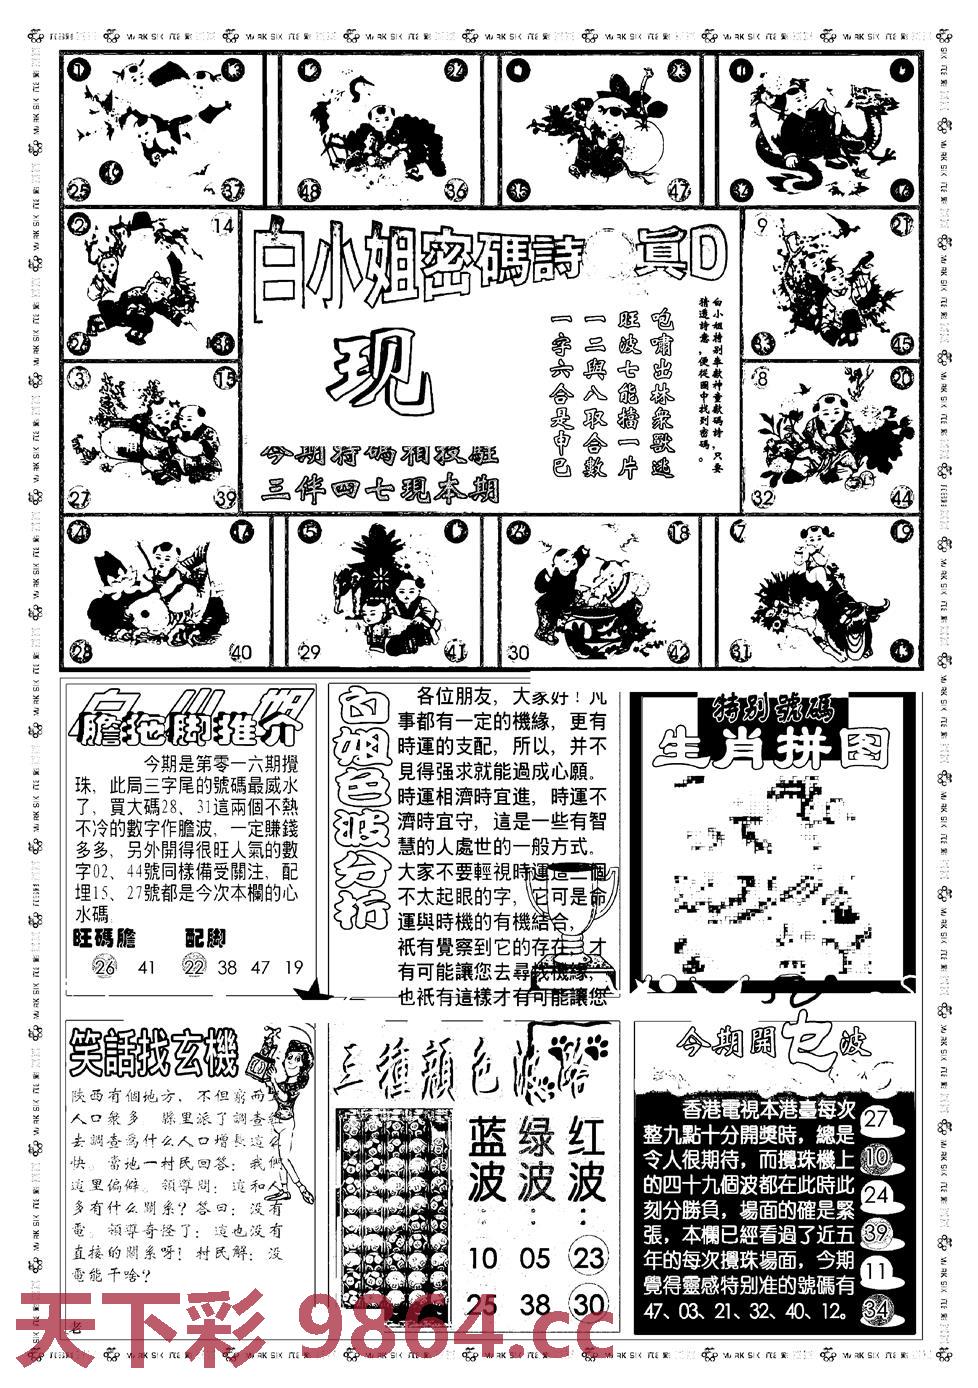 25
37
48
36
35
47
14
9
21
38
33
45
3
15
27
39
8
20
32
44
白小姐密碼詩
真D
现
白小姐特别奉獻神童數碼詩，只要
猜透詩意，便從圖中找到密碼。
咆嘯出林衆獸逃
旺波七能擋一片
一二與八取合數
一字六合是申巳
三伴四七現本期
28
40
5
29
41
18
30
42
7
19
31
膽拖脚推介
今期是第零一六期攪
珠，此局三字尾的號碼最威水
了，買大碼28、31這兩個不熱
不冷的數字作膽波，一定賺錢
多多，另外開得很旺人氣的數
字02、44號同樣備受關注，配
埋15、27號都是今次本欄的心
水碼
旺碼膽 配脚
26 41 22 38 47 19
白姐色波分析
各位朋友，大家好！凡
事都有一定的機緣，更有
時運的支配，所以，并不
見得强求就能過成心願。
時運相濟時宜進，時運不
濟時宜守，這是一些有智
慧的人處世的一般方式。
大家不要輕視時運這二個
不太起眼的字，它可是命
運與時機的有機結合，
衹有覺察到它的存在，才
有可能讓您去尋找機緣，
也衹有這樣才有可能讓您
特别號碼
生肖拼图
笑話找玄機
陕西有個地方，不但窮而
人口衆多 縣里派了調查組
去調查為什么人口增長這么
快。當地一村民回答：我們
這里偏僻。領導問：這和人
多有什么關系？答曰：没有
電。領導奇怪了：這也没有
直接的關系呀！村民解：没
電能干啥？
老
三種顔色波路
蓝波：
10
25
绿波：
05
38
红波：
23
30
今期開乜波
香港電視本港臺每次
整九點十分開獎時，總是
令人很期待，而攪珠機上
的四十九個波都在此時此
刻分勝負，場面的確是緊
張，本欄已經看過了近五
年的每次攪珠場面，今期
覺得靈感特别准的號碼有
47、03、21、32、40、12。
27
10
24
39
11
34
天下彩 9864.cc